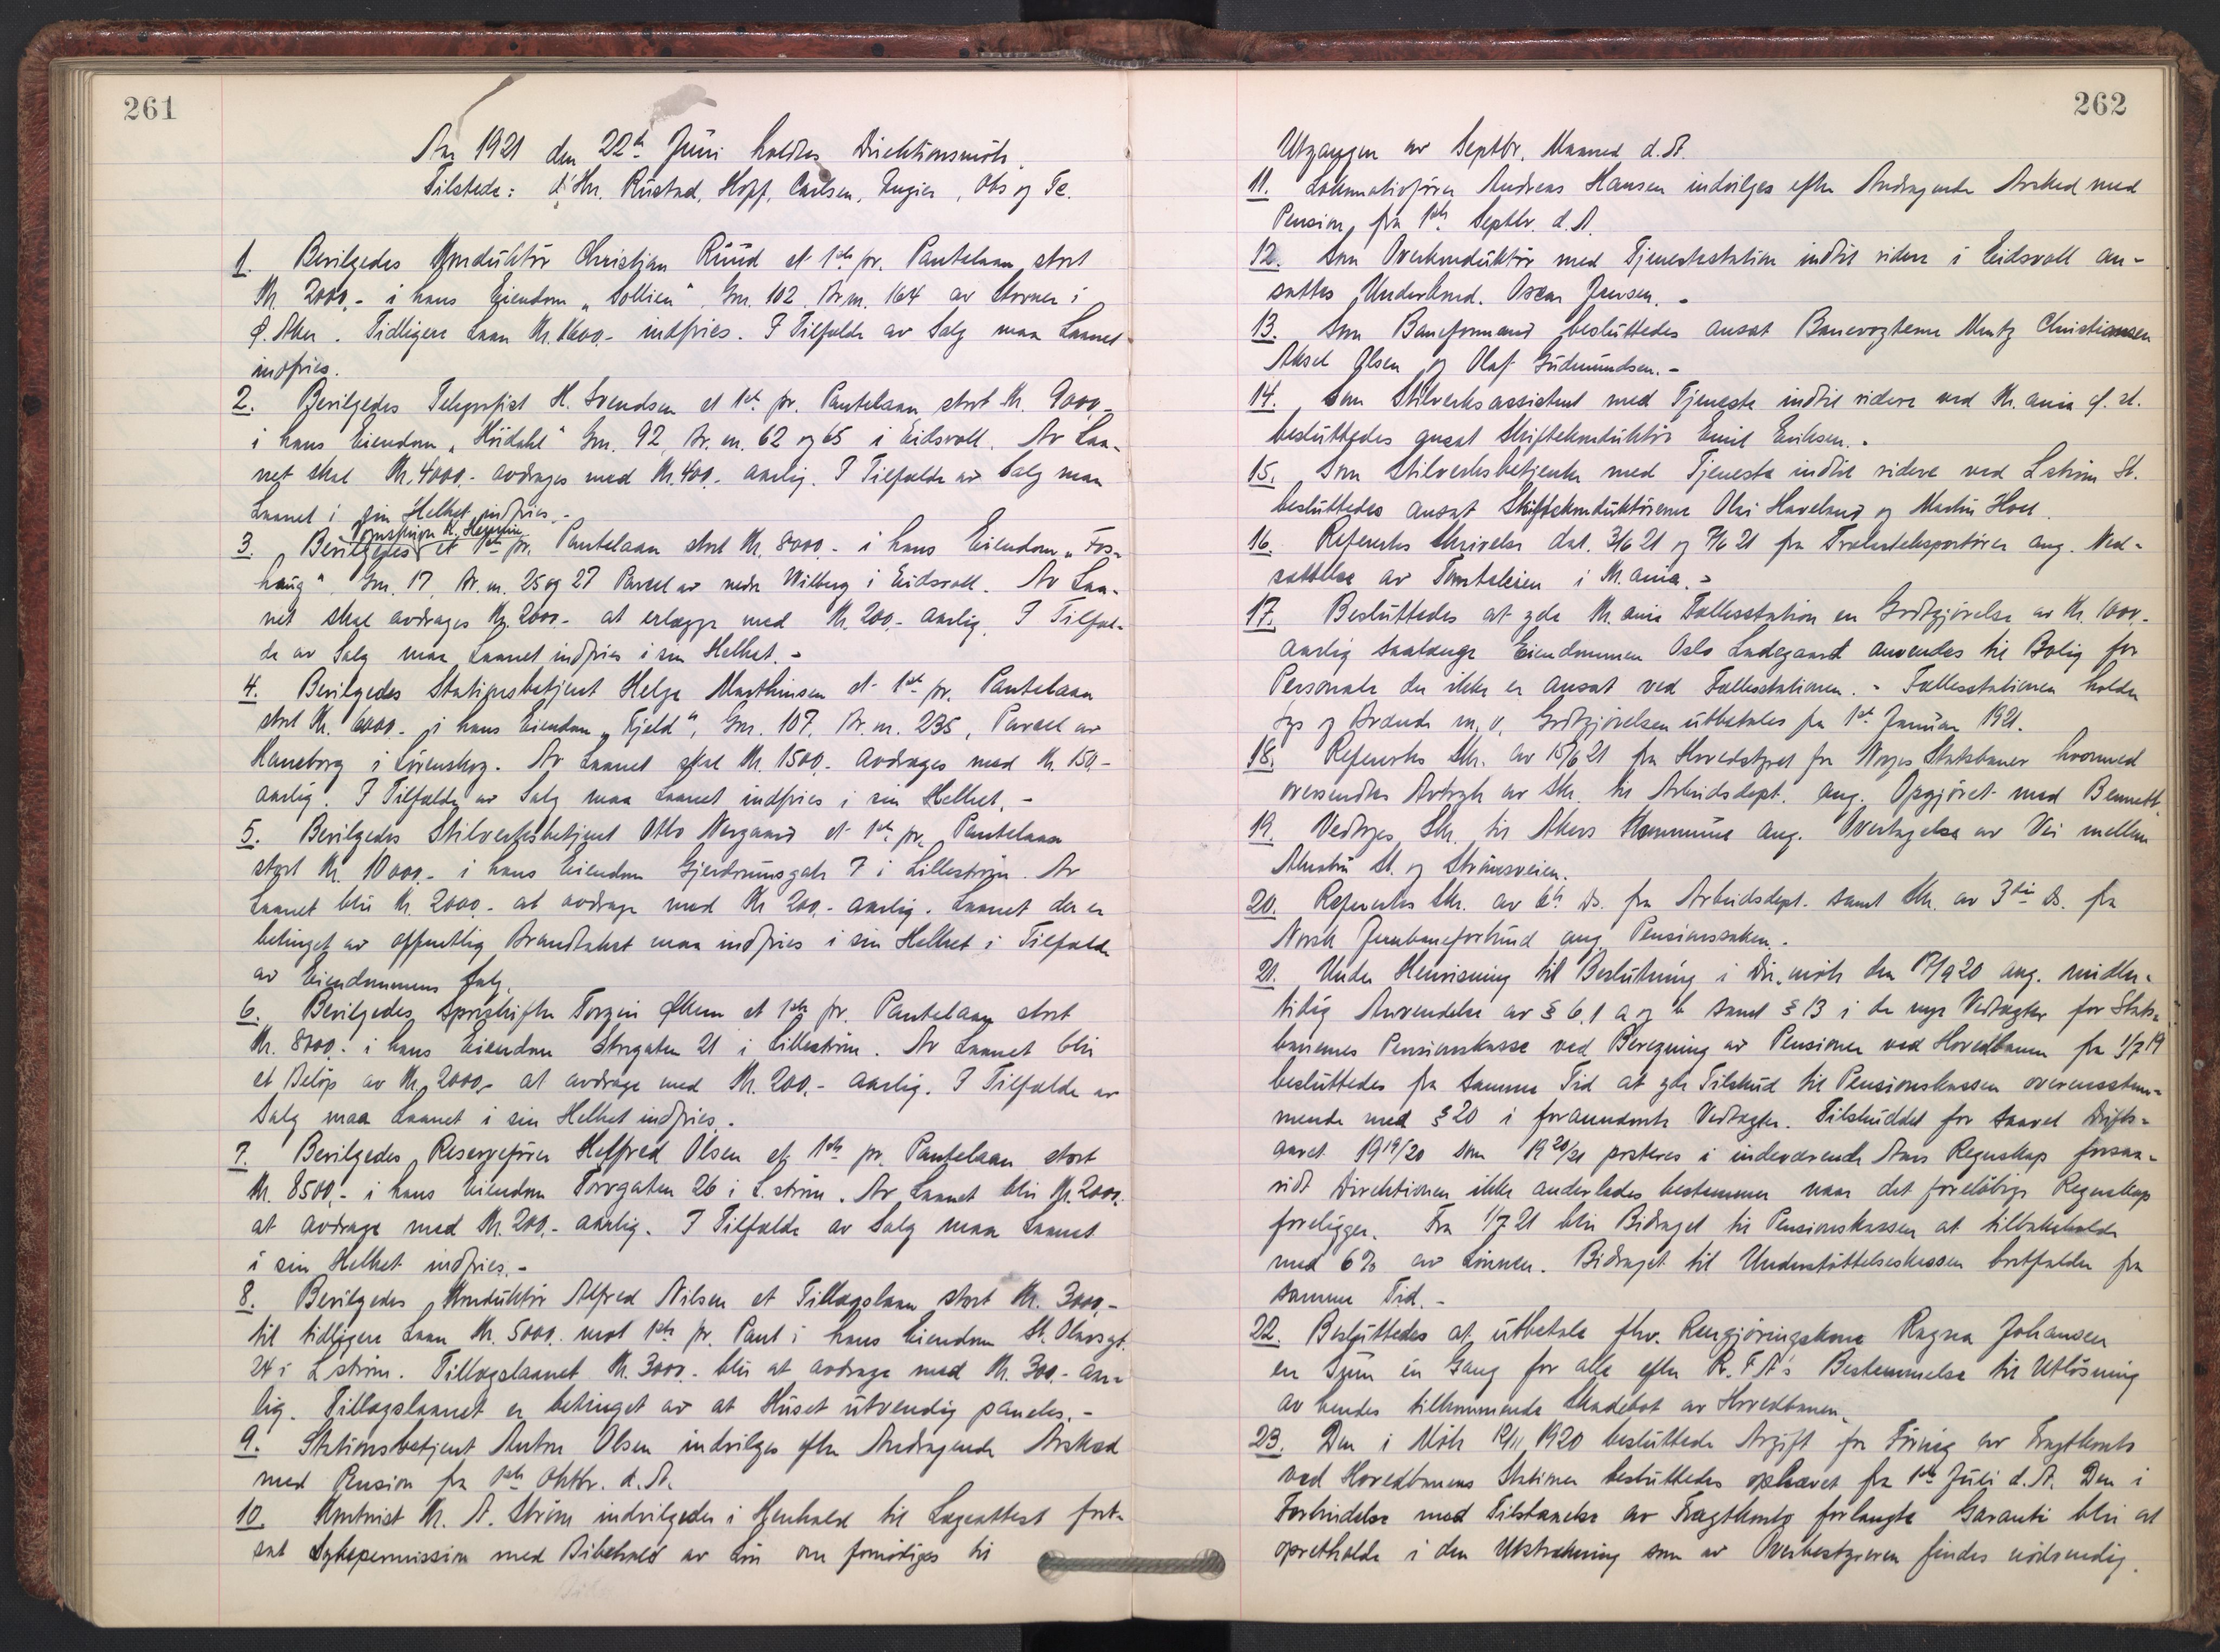 261
Aar 1921 den 22de Juni holdtes Direktionsmöte.
Tilstede: d'Hrr. Rustad, Hopp, Carlsen, Rugier, Obs og Te.
1. Bevilgedes Konduktör Christian Ruud et 1ste pr. Pantelaan stort
Kr. 2000,- i hans Eiendom "Sollien" Gm. 102 Br.nr. 164 av Lörner i
Ø. Aker. Tidligere Laan Kr. 1600.- indfries. I Tilfælde av Salg maa Laanet
indfries.
2. Bevilgedes Telegrafist H. Svendsen et 1ste pr. Pantelaan stort Kr. 9000,-
i hans Eiendom "Höidahl" Gm. 92, Br. nr. 62 og 65 i Eidsvoll. Av Laa-
net skal Kr. 4000.- avdrages med Kr. 400.- aarlig. I Tilfælde av Salg maa
Laanet i sin Helhet indfries.-
3. Bevilgedes et 1ste pr. Pantelaan stort Kr. 8000.- i hans Eiendom "Fos-
haug" Gm. 17, Br. nr. 25 og 27 Parcel av nedre Wilberg i Eidsvoll. Av Laa-
net skal avdrages Kr. 2000.- at erlægge med Kr. 200,- aarlig. I Tilfæl-
de av Salg maa Laanet indfries i sin Helhet.-
4. Bevilgedes Stationsbetjent Helge Marthinsen et 1ste pr. Pantelaan
stort Kr. 6000.- i hans Eiendom "Fjeld", Gm. 107, Br. nr. 235, Parcel av
Haneborg i Lörenskog. Av Laanet skal Kr. 1500,- avdrages med Kr. 150,-
aarlig. I Tilfælde av Salg maa Laanet indfries i sin Helhet.-
5. Bevilgedes Stilverksbetjent Otto Norgaard et 1ste pr. Pantelaan
stort Kr. 10000.- i hans Eiendom Gjerdrumsgate 7 i Lilleström. Av
Laanet blir Kr. 2000.- at avdrage med Kr 200,- aarlig. Laanet der er
betinget av offentlig Brandtakst maa indfries i sin Helhet i Tilfælde
av Eiendommens Salg.
6. Bevilgedes Sporskifter Torgin Økern et 1ste pr. Pantelaan stort
Kr. 8000.- i hans Eiendom Storgaten 21 i Lilleström. Av Laanet blir
et Belöp av Kr. 2000,- at avdrage med Kr. 200.- aarlig. I Tilfælde av
Salg maa Laanet i sin Helhet indfries.-
7. Bevilgedes Reservefören Helfred Olsen et 1ste pr. Pantelaan stort
Kr. 8500,- i hans Eiendom Torvgaten 26 i L.ström. Av Laanet blir Kr. 2000.
at avdrage med Kr. 200,- aarlig. I Tilfælde av Salg maa Laanet
i sin Helhet indfries.-
8. Bevilgedes Konduktör Alfred Nilsen et Tillægslaan stort Kr. 3000,-
til tidligere Laan Kr. 5000. mot 1ste pr. Pant i hans Eiendom St. Olavsgt.
24 i L.ström. Tillægslaanet Kr. 3000.- blir at avdrage med Kr. 300.- aar-
lig. Tillægslaanet er betinget av at Huset utvendig paneles.-
9. Stationsbetjent Anton Olsen indvilges efter Andragende Avsked
med Pension fra 1ste Oktbr. d. A.
10. Kontorist Kr. A. Ström indvilgedes i Henhold til Lægeattest fort-
sat Sykepermission med Bibehold av Lön om fornödiges til
262
Utgangen av Septbr. Maaned d.A.
11. Lokomotivförer Andreas Hansen indvilges efter Andragende Avsked med
Pension fra 1ste Septbr. d. A.
12. Som Overkonduktör med Tjenestestation indtil videre i Eidsvoll an-
sattes Underkond. Oscar Jensen.-
13. Som Baneformænd besluttedes ansat Banevogterne Mentz Christiansen
Aksel Olsen og Olaf Gudmundsen.-
14. Som Stilverksassistent med Tjeneste indtil videre ved Kr.ania Ø. st.
besluttedes ansat Skiftekonduktör Emil Eriksen.-
15. Som Stilverksbetjente med Tjeneste indtil videre ved L.ström St.
besluttedes ansat Skiftekonduktörerne Olai Haveland og Martin Hoel.
16. Referertes Skrivelse dat. 3/6 21 og 7/6 21 fra Trælasteksportörer ang. Ned-
sættelse av Tomteleien i Kr.ania.-
17. Besluttedes at yde Kr.ania Fællesstation en Godtgjörelse av Kr. 1000.-
aarlig saalænge Eiendommen Oslo Ladegaard anvendes til Bolig for
Personale der ikke er ansat ved Fællesstationen.- Fællesstationen holder
Lys og Brænde m. v. Godtgjörelsen utbetales fra 1ste Januar 1921.
18. Referertes Skr. av 15/6 21 fra Hovedstyret for Norges Statsbaner hvormed
oversendtes Avtryk av Skr. til Arbeidsdept. ang. Opgjöret med Bennett.
19. Vedtoges Skr. til Akers Kommune ang. Overtagelse av Vei mellem
Alnabru St. og Strömsveien.
20. Referertes Skr. av 6te ds. fra Arbeidsdept. samt Skr. av 3die ds. fra
Norsk Jernbaneforbund ang. Pensionssaken.-
21. Under Henvisning til Beslutning i Dir.möte den 17/9 20 ang. midler-
tidig Anvendelse av § 6, 1 a og b samt § 13 i de nye Vedtægter for Stats-
banernes Pensionskasse ved Beregning av Pensioner ved Hovedbanen fra 1/7 19
besluttedes fra samme Tid at yde Tilskud til Pensionskassen overensstem-
mende med § 20 i forannævnte Vedtægter. Tilskuddet for saavel Drifts-
aaret 1919/20 som 1920/21 posteres i indeværende Aars Regnskap forsaa-
vidt Direktionen ikke anderledes bestemmer naar det foreløbige Regnskap
foreligger. Fra 1/7 21 blir Bidraget til Pensionskassen at tilbakeholde
med 6% av Lönnen. Bidraget til Understöttelseskassen bortfalder fra
samme Tid.-
22. Besluttedes at utbetale fhv. Rengjöringskone Ragna Johansen
en Sum én Gang for alle efter R.F.A's Bestemmelse til Utlösning
av hendes tilkommende Skadebot av Hovedbanen.
23. Den i Möte 12/11 1920 besluttede Avgift for Föring av Fragtkonto
ved Hovedbanens Stationer besluttedes ophævet fra 1ste Juli d. A. Den i
Forbindelse med Tilstaaelse av Fragtkonto forlangte Garanti blir at
opretholde i den Utstrækning som av Overbestyreren findes nödvendig.